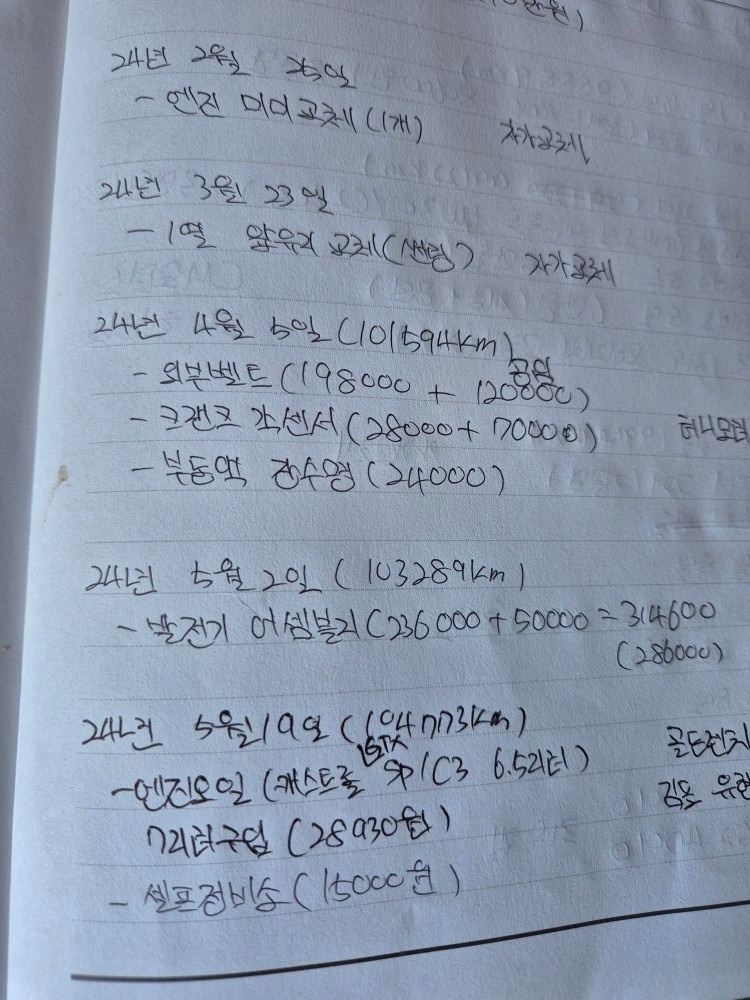 24년 2월 26일
- 엔진 미미교체 (1개) 자가교체
24년 3월 23일
- 1열 앞유리 교체(썬팅) 자가교체
24년 4월 5일 (101594km)
- 외부벨트 (198000 + 120000) 공임
- 크랜크 각센서 (28000 + 70000)
- 부동액 (24000)
24년 5월 2일 (103289km)
- 발전기 어셈블리 (236000 + 50000 = 314600
(286000)
24년 5월 19일 (104773km)
- 엔진오일 (캐스트롤 SP/C3 6.5리터)
7리터구입 (28930원)
- 셀프정비송 (15000원)